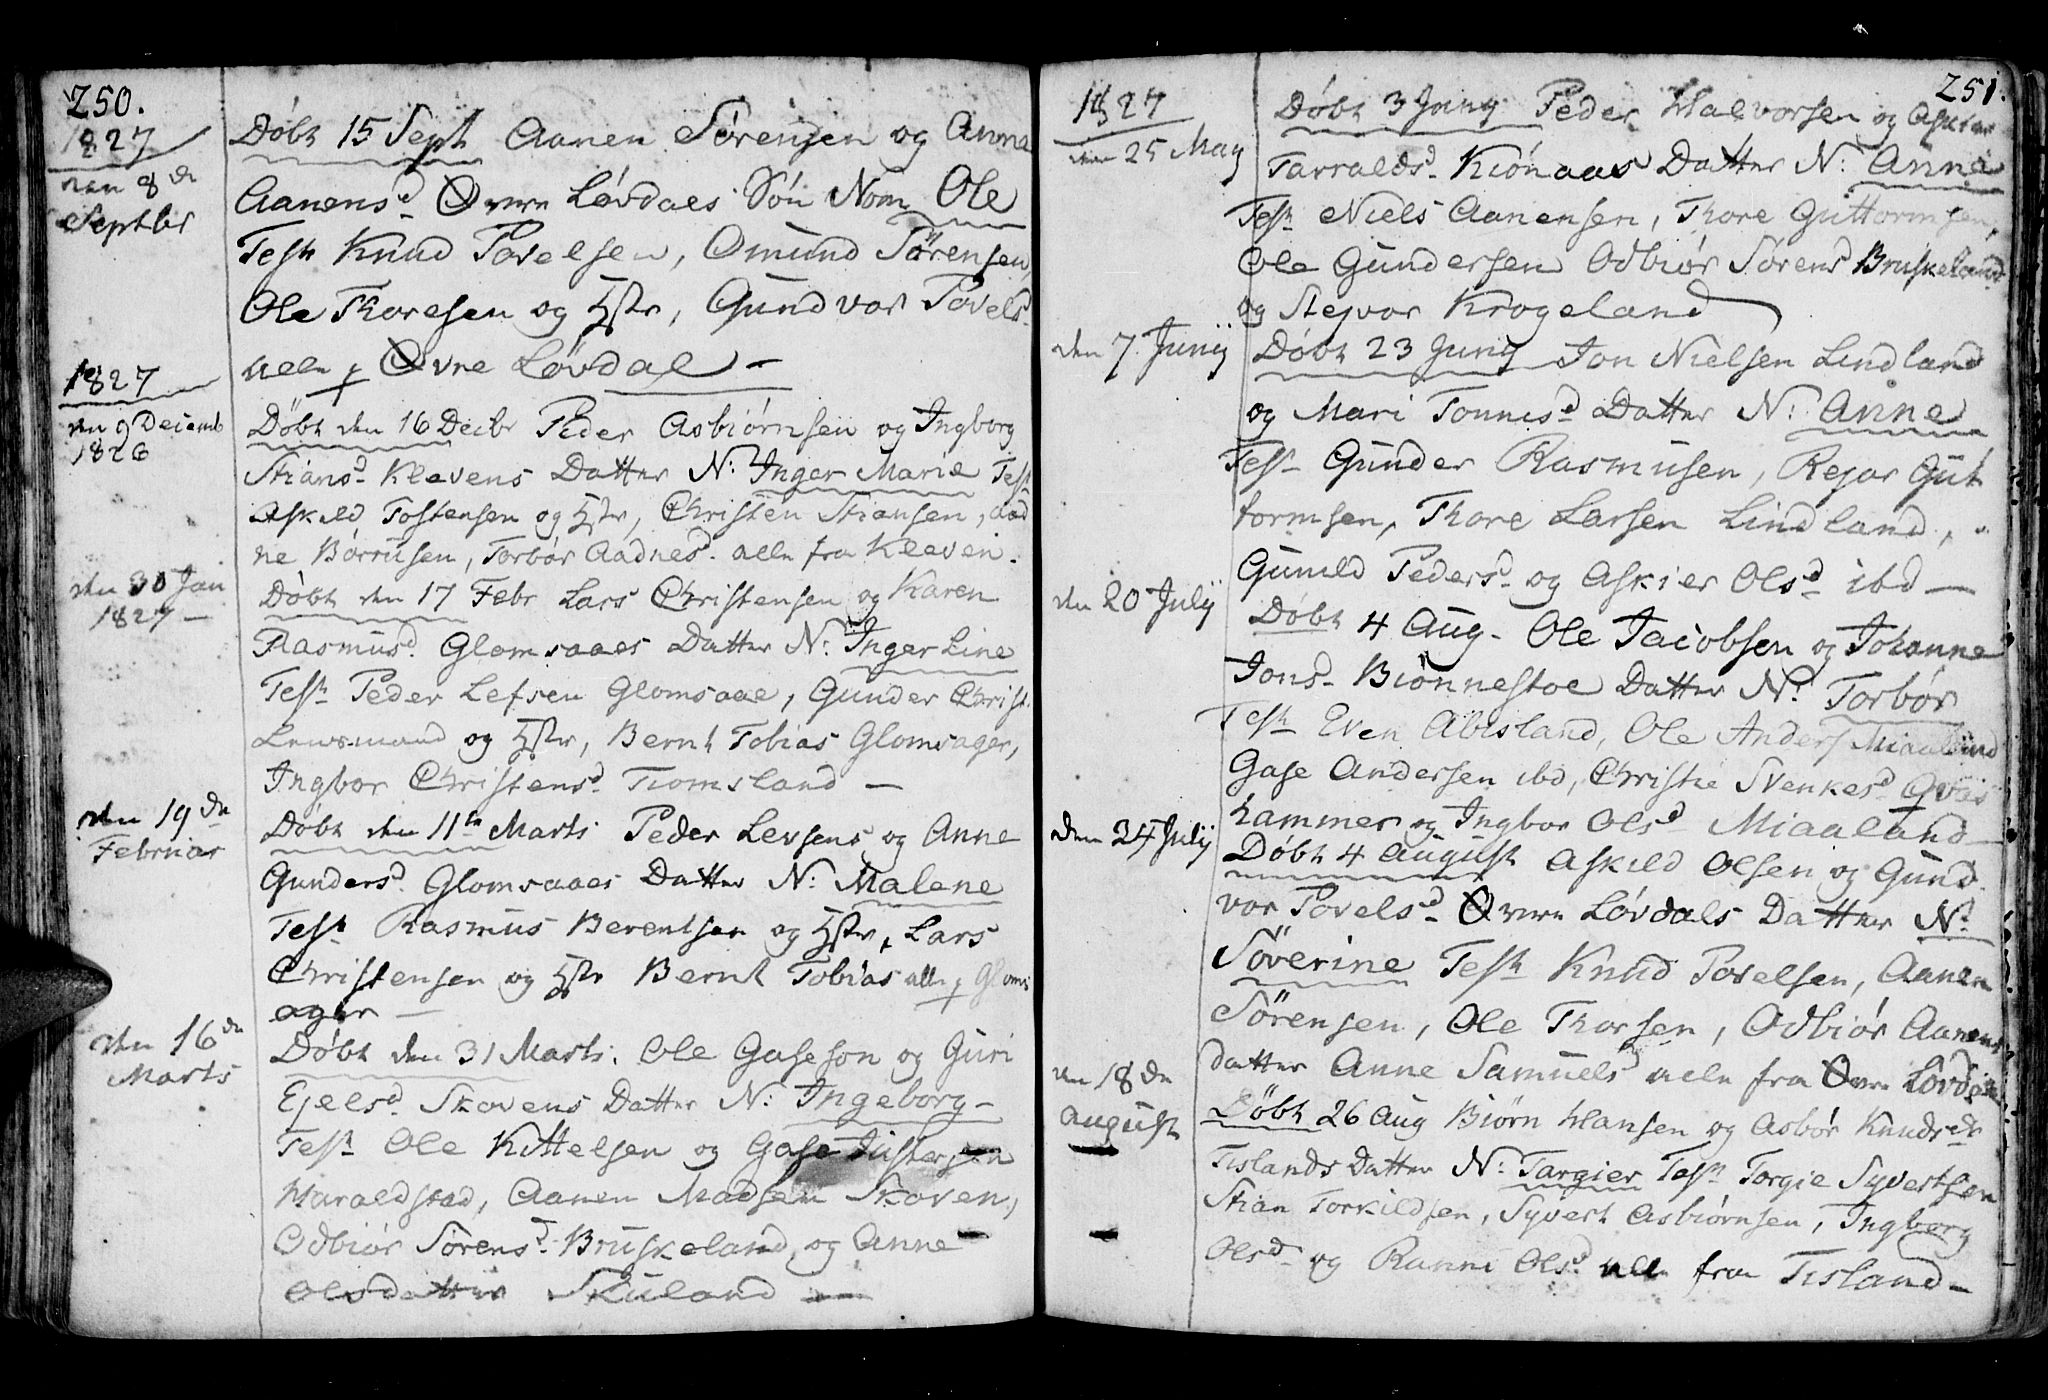 250.
1827
den 8de
Septbr
Døbt 15 Sept Aanen Sørensen og Anna
Aanensd Øvre Løvdals Søn Nom Ole
Test Knud Povelsen, Omund Sörensen,
Ole Thoresen og Hstr, Gundvor Povels
alle f Øvre Lövdal —
1827
den 9 Decemb
1826
Döbt den 16 Decbr Peder Asbiörnsen og Ingborg
Stiansd Klevens Datter N: Inger Marie Test
Askild Tostensen og Hstr, Christen Stiansen, Aad
ne Börrusen, Torbör Aadnesd. alle fra Kleven.
den 30 Jan
1827 —
Döbt den 17 Febr Lars Christensen og Karen
Rasmusd. Glomsaaes Datter N: Inger Line
Test Peder Lefsen Glomsaae, Gunder Christ.
Lensmand og Hstr, Bernt Tobias Glomsager,
Ingbor Christensd Tiomsland —
den 19de
Februar
Döbt den 11te Marts Peder Levsens og Anne
Gundersd. Glomsaaes Datter N: Malene
Test Rasmus Berentsen og Hstr, Lars
Christensen og Hstr Bernt Tobias alle f Gloms
ager —
den 16de
Marts
Döbt den 31 Marts. Ole Gaseson og Guri
Ejelsd. Skovens Datter N: Ingeborg —
Test Ole Kittelsen og Gase
Haraldstad, Aanen Madsen Skoven,
Odbiör Sörensd. Bruskeland, og Anne
Olsdatter Skuland —
251.
1827
den 25 May
Döbt 3 Juny Peder Halvorsen og
Tarraldsd. Kiönaas Datter N: Anne
Test Niels Aanensen, Thore Guttormsen,
Ole Gundersen Odbiör Sörensd Bruskeland
og Stejvor Krogeland
den 7 Junij
Döbt 23 Junij Jon Nielsen Lindland
og Mari Tonnesd Datter N: Anne
Test Gunder Rasmusen, Rejar Gut
tormsen, Thore Larsen Lindland,
Guneld Pedersd og Askier Olsd ibd —
den 20 Julij
Döbt 4 Aug. Ole Jacobsen og Johanne
Jonsd. Biönnestoe Datter N: Torbör
Test Even Abesland, Ole Anders Miaaland
Gase Andersen ibd, Christie Svenkesd
hammer og Ingbor Olsd Miaaland —
den 24 Julij
Döbt 4 August Askild Olsen og Gund
vor Povelsd Øvre Lövdals Datter N:
Söverine Test Knud Povelsen, Aanen
Sörensen, Ole Thorsen, Odbiör Aanens
datter Anne Samuelsd alle fra Øvre Lövdal
den 18de
August
Döbt 26 Aug Biörn Hansen og Asbör Knudsdr
Tislands Datter N: Targier Test Torgie Syvertsen
Stian Torkildsen, Syvert Asbiörnsen, Ingborg
Olsd og Ranni Olsd. alle fra Tisland —